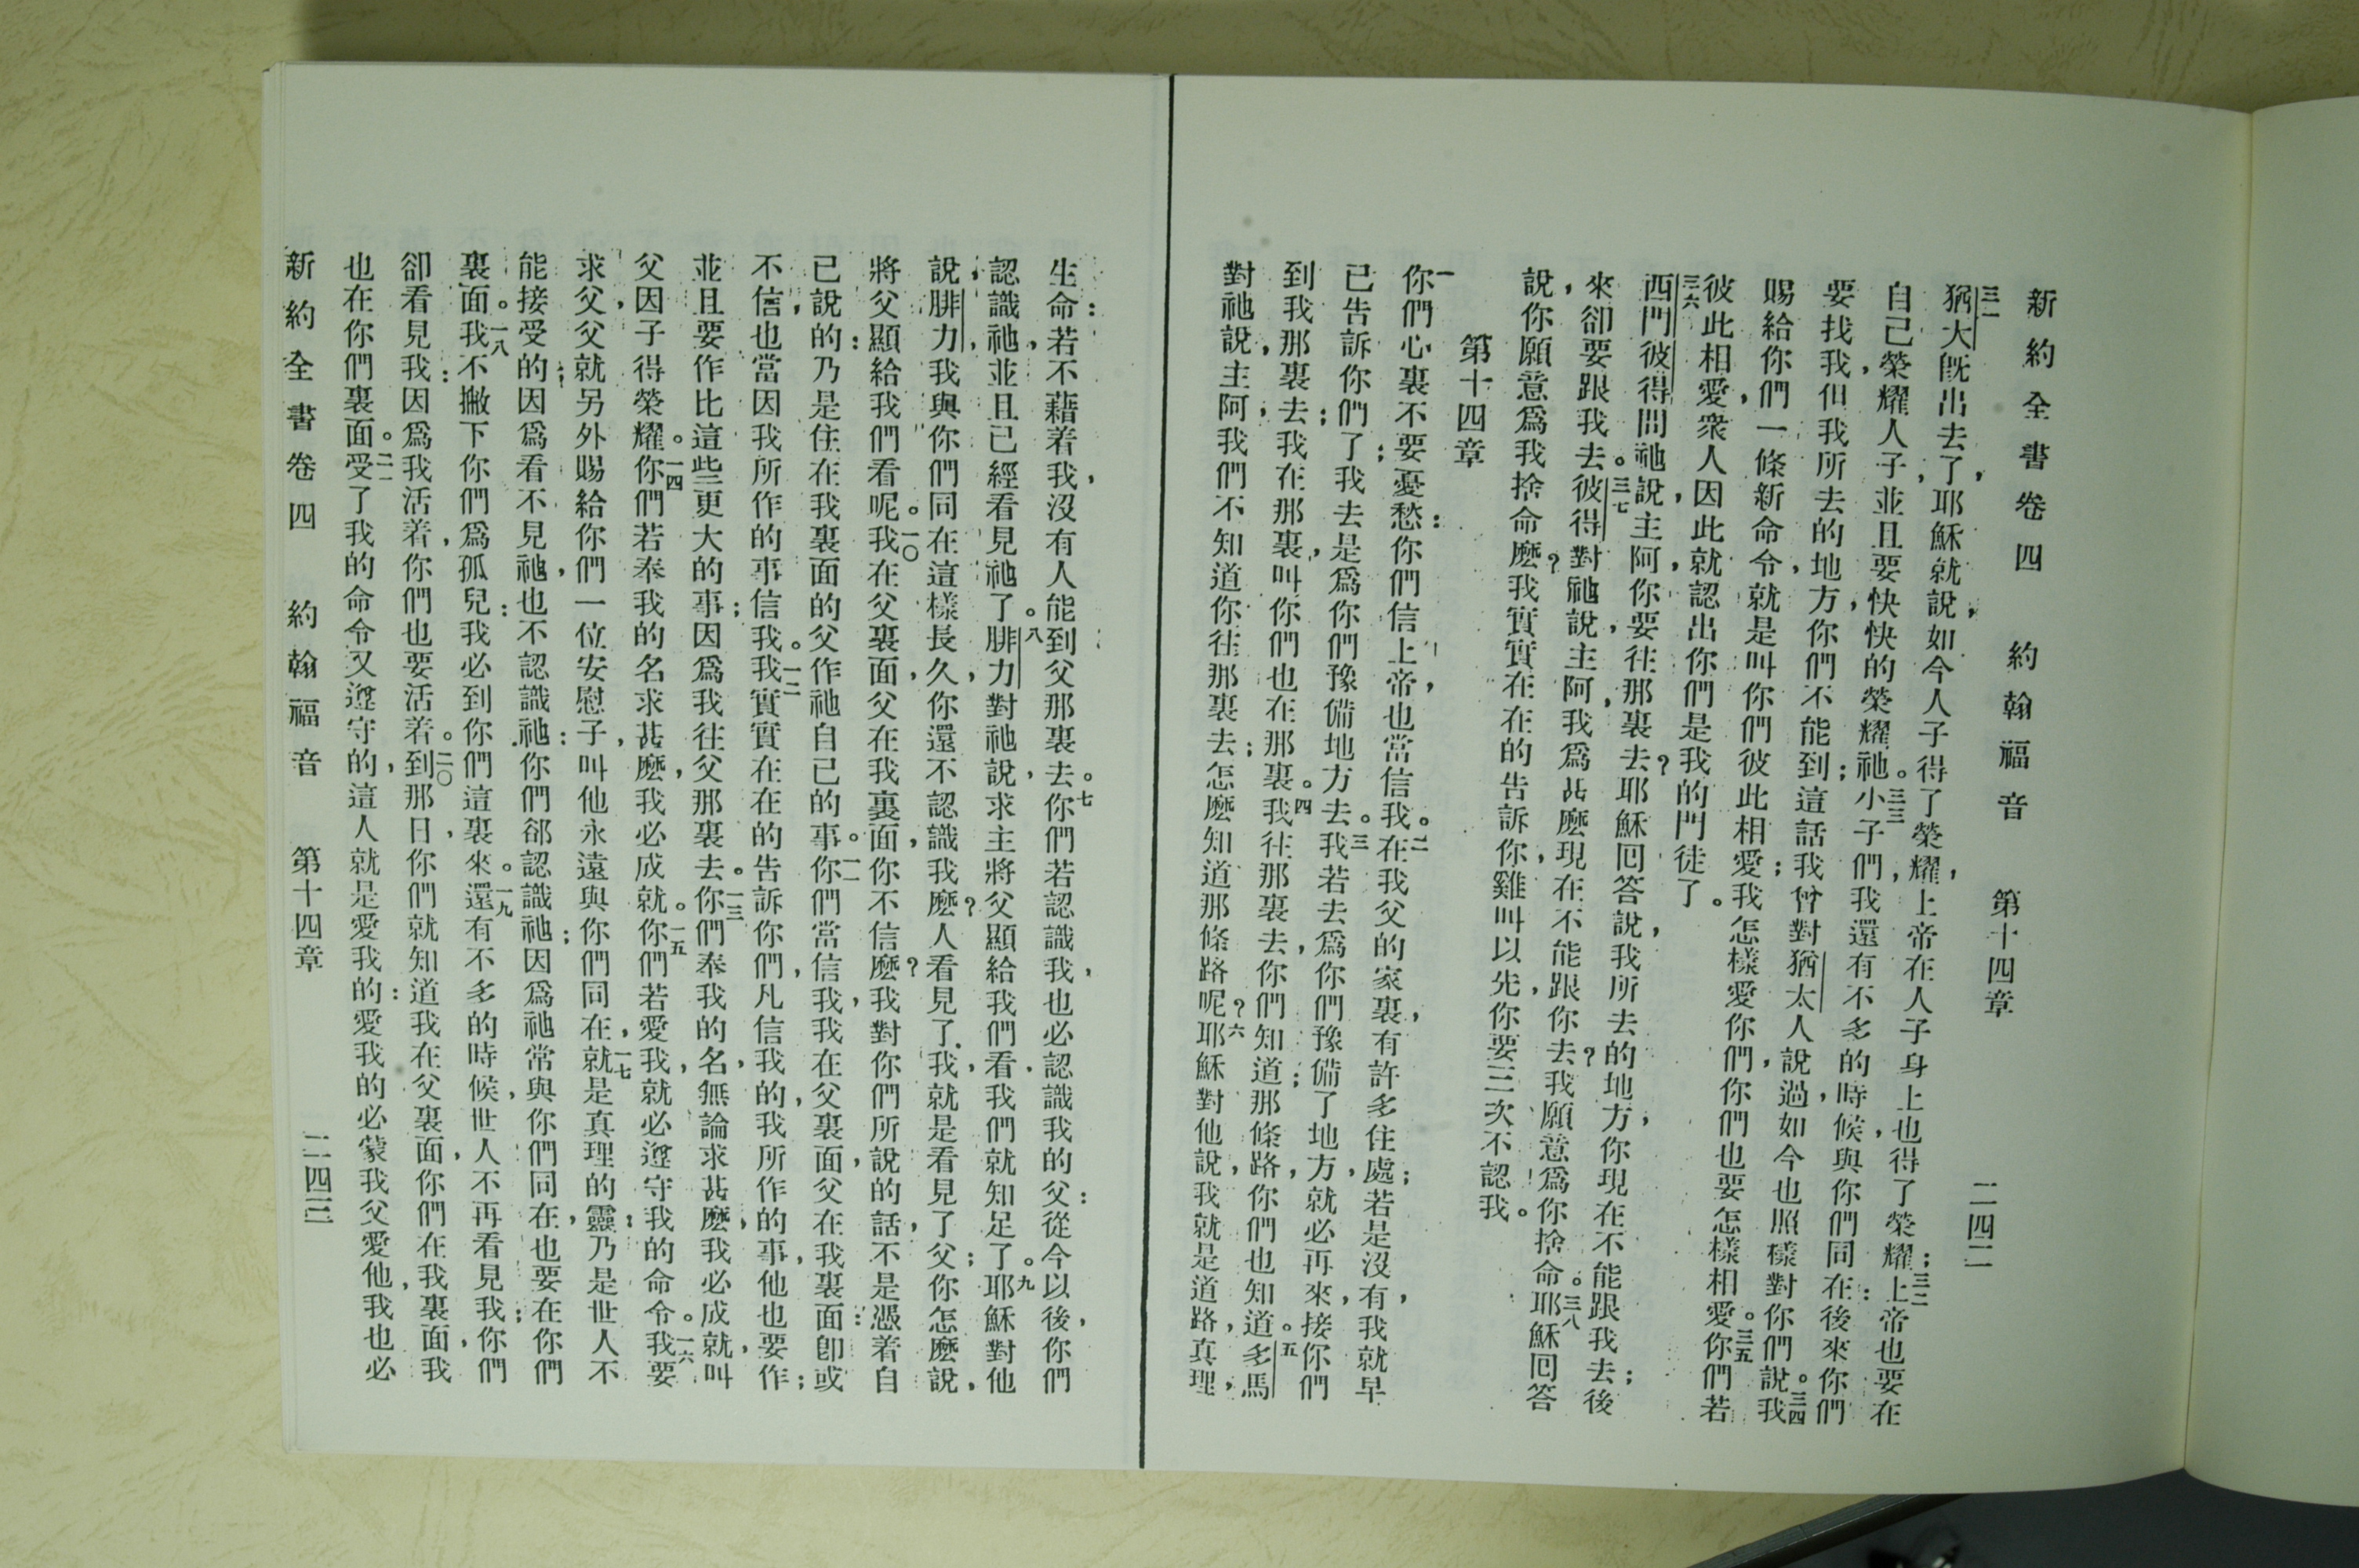 新約全書卷四　約翰福音　第十四章　二四二
三一猶大旣出去了、耶穌就說、如今人子得了榮耀、上帝在人子身上也得了榮耀；三二上帝也要在
自己榮耀人子、並且要快快的榮耀祂。三三小子們、我還有不多的時候、與你們同在：後來你們
要找我、但我所去的地方、你們不能到；這話我曾對猶太人說過、如今也照樣對你們說。三四我
賜給你們一條新命令、就是叫你們彼此相愛；我怎樣愛你們、你們也要怎樣相愛。三五你們若
彼此相愛、衆人因此就認出你們是我的門徒了。
三六西門彼得問祂說、主阿、你要往那裏去？耶穌回答說、我所去的地方、你現在不能跟我去；後
來卻要跟我去。三七彼得對祂說、主阿、我爲甚麽現在不能跟你去？我願意爲你捨命。三八耶穌回答
說、你願意爲我捨命麽？我實實在在的告訴你、雞叫以先、你要三次不認我。
第十四章
一你們心裏不要憂愁：你們信上帝、也當信我。二在我父的家裏、有許多住處；若是沒有、我就早
已告訴你們了；我去是爲你們豫備地方去。三我若去爲你們豫備了地方、就必再來、接你們
到我那裏去；我在那裏、叫你們也在那裏。四我往那裏去、你們知道；那條路、你們也知道。五多馬
對祂說、主阿、我們不知道你往那裏去；怎麽知道那條路呢？六耶穌對他說、我就是道路、眞理、
生命：若不藉着我、沒有人能到父那裏去。七你們若認識我、也必認識我的父：從今以後、你們
認識祂、並且已經看見祂了。八腓力對祂說、求主將父顯給我們看、我們就知足了。九耶穌對他
說、腓力、我與你們同在這樣長久、你還不認識我麽？人看見了我、就是看見了父；你怎麽說、
將父顯給我們看呢。一〇我在父裏面、父在我裏面、你不信麽？我對你們所說的話、不是憑着自
己說的：乃是住在我裏面的父作祂自己的事。一一你們當信我、我在父裏面、父在我裏面：卽或
不信、也當因我所作的事信我。一二我實實在在的告訴你們、凡信我的、我所作的事、他也要作；
並且要作比這些更大的事；因爲我往父那裏去。一三你們奉我的名、無論求甚麽、我必成就、叫
父因子得榮耀。一四你們若奉我的名求甚麽、我必成就。一五你們若愛我、就必遵守我的命令。一六我要
求父、父就另外賜給你們一位安慰子、叫他永遠與你們同在、一七就是真理的靈：乃是世人不
能接受的：因爲看不見祂、也不認識祂：你們卻認識祂；因爲祂常與你們同在、也要在你們
裏面。一八我不撇下你們爲孤兒：我必到你們這裏來。一九還有不多的時候、世人不再看見我；你們
卻看見我：因爲我活着、你們也要活着。二〇到那日、你們就知道我在父裏面、你們在我裏面、我
也在你們裏面。二一受了我的命令又遵守的、這人就是愛我的：愛我的必蒙我父愛他、我也必
新約全書卷四　約翰福音　第十四章　二四三